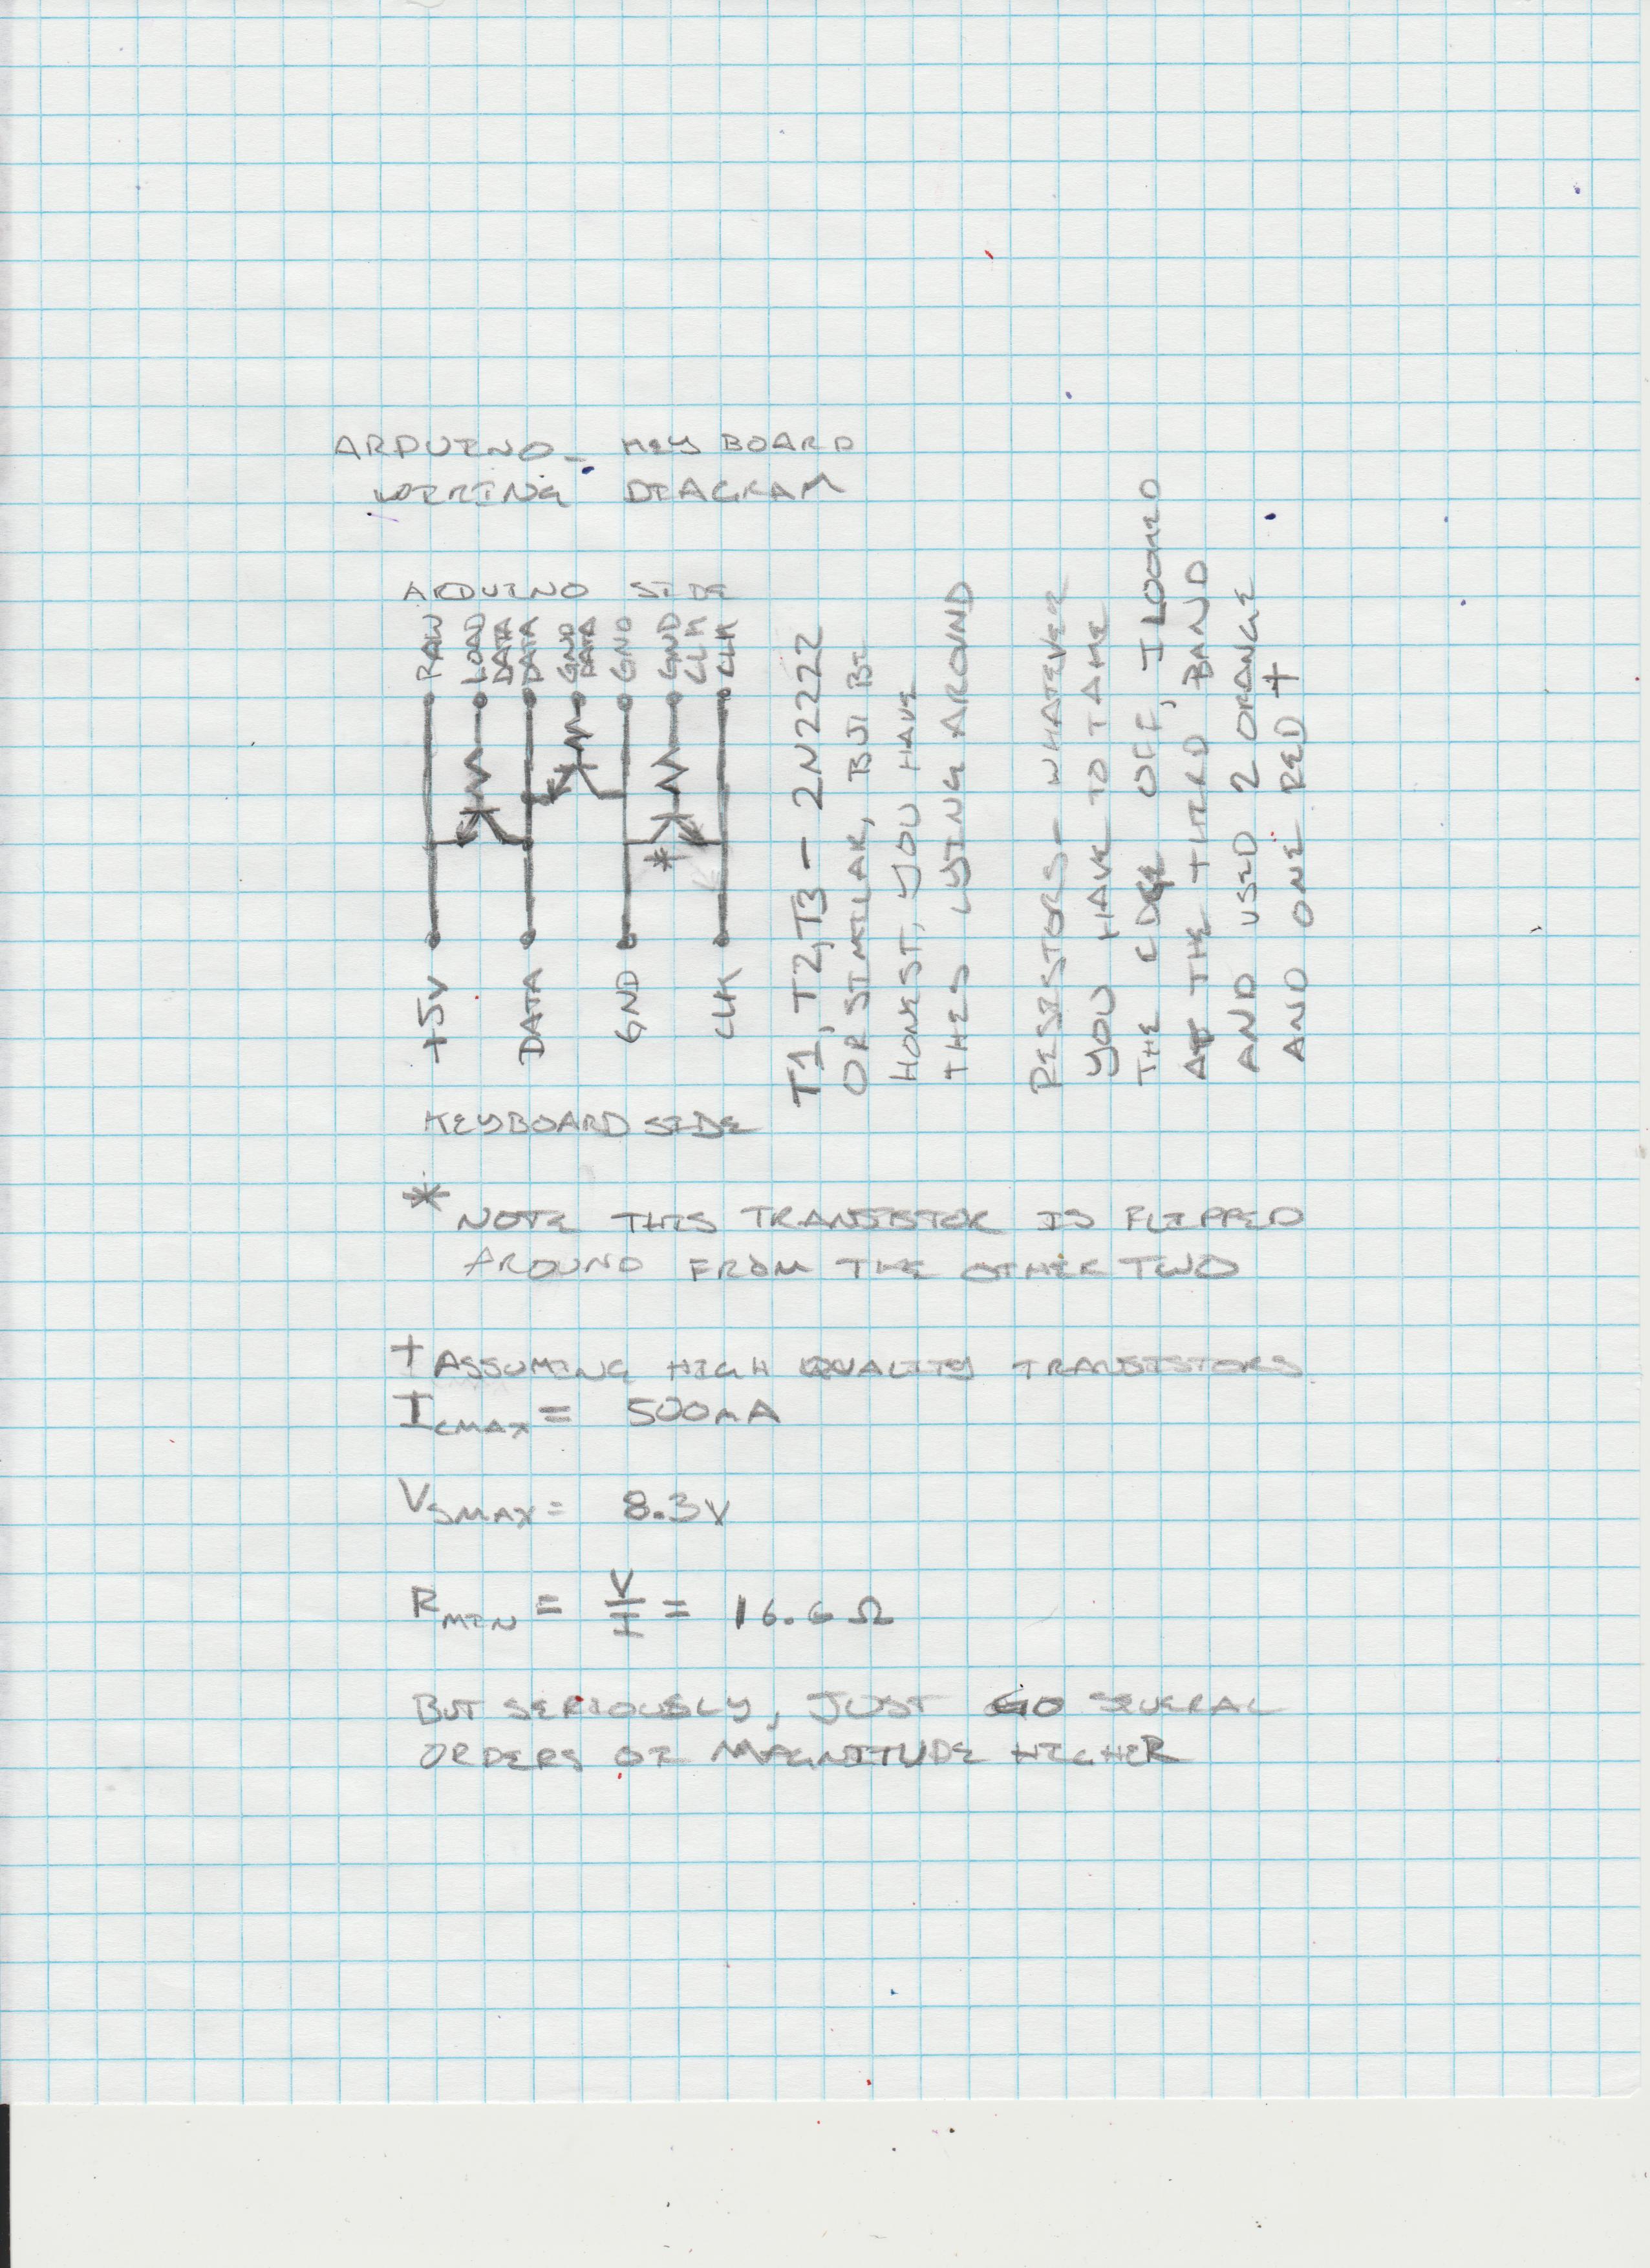 ARDUINO - KEYBOARD
WIRING DIAGRAM
ARDUINO SIDE
RAW
LOAD
DATA
DATA
GND
DATA
GND
GND
CLK
CLK
*
+5V
DATA
GND
CLK
KEYBOARD SIDE
T1, T2, T3 - 2N2222
OR SIMILAR, BUT BE
HONEST, YOU HAVE
THES LYING AROUND
RESISTORS - WHATEVER
YOU HAVE TO TAKE
THE EDGE OFF, I LOOKED
AT THE THIRD BAND
AND USED 2 ORANGE
AND ONE RED †
* NOTE THIS TRANSISTOR IS FLIPPED
AROUND FROM THE OTHER TWO
† ASSUMING HIGH QUALITY TRANSISTORS
ICMAX = 500mA
VSMAX = 8.3V
RMIN = V/I = 16.6 Ω
BUT SERIOUSLY, JUST GO SEVERAL
ORDERS OF MAGNITUDE HIGHER